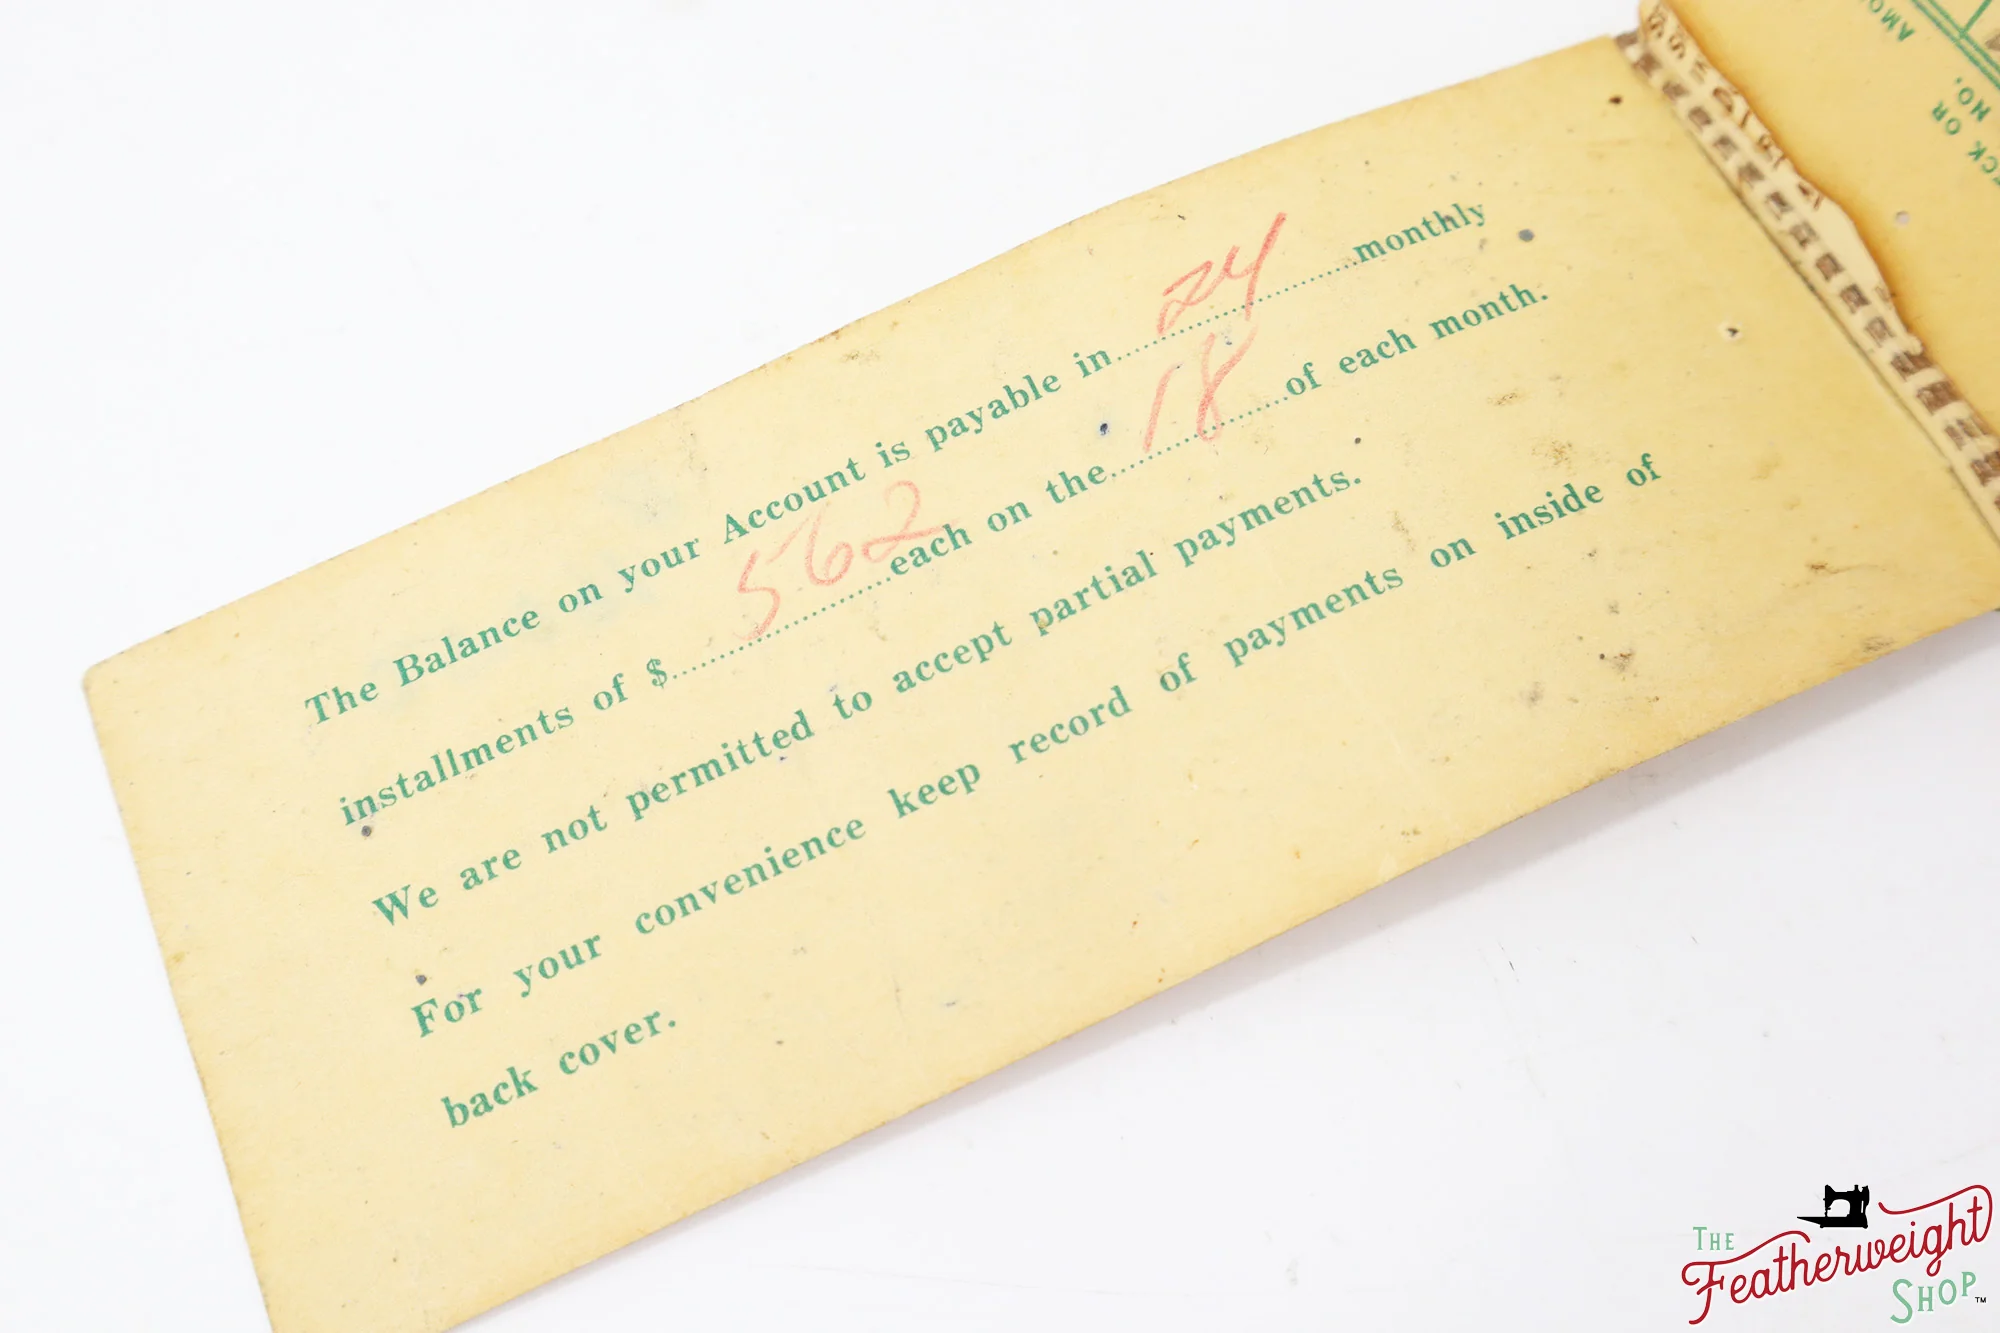 The Balance on your Account is payable in 24 monthly
installments of $ 562 each on the 18 of each month.
We are not permitted to accept partial payments.
For your convenience keep record of payments on inside of
back cover.
OR
NO.
THE
Featherweight
SHOP™